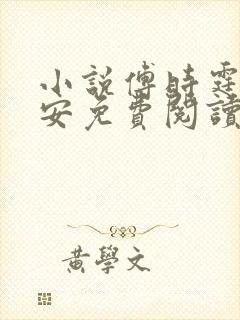 小說傅時霆
安免費閱讀
黃學文